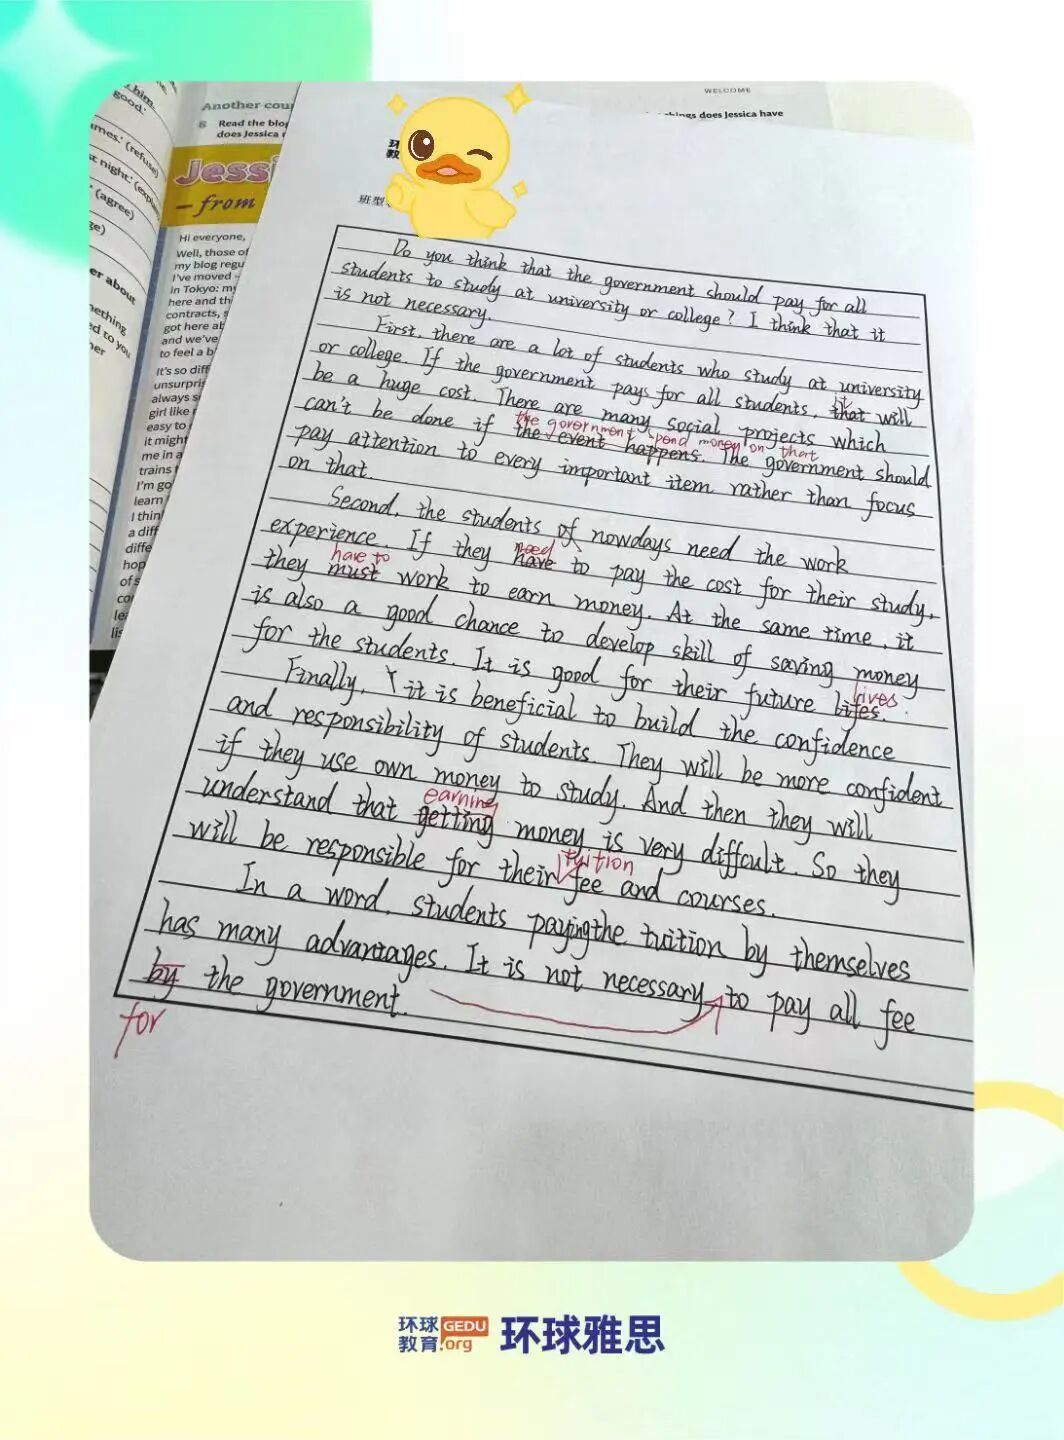 him.
good.'
WELCOME
Another cou
8 Read the blog
does Jessica
things does Jessica have
ames.' (refuse)
t night.' (expla
' (agree)
ge)
er about
mething
ed to you
her
Jessi
– from
Hi everyone,
Well, those of
my blog regu
I've moved –
in Tokyo: my
here and thi
contracts, s
got here ab
and we've
to feel a b
It's so diff
unsurpris
always s
girl like
easy to
it might
me in a
trains
I'm go
learn
I thin
a diff
diffe
hop
of s
co
lea
lis
班型
Do you think that the government should pay for all
students to study at university or college? I think that it
is not necessary.
First, there are a lot of students who study at university
or college. If the government pays for all students, that will
it
be a huge cost. There are many social projects which
can't be done if the event happens. The government should
the government spend money on that
pay attention to every important item rather than focus
on that.
Second, the students of nowdays need the work
experience. If they have to pay the cost for their study,
need
they must work to earn money. At the same time, it
have to
is also a good chance to develop skill of saving money
for the students. It is good for their future lifes.
lives.
Finally, it is beneficial to build the confidence
and responsibility of students. They will be more confident
if they use own money to study. And then they will
understand that getting money is very difficult. So they
earning
will be responsible for their fee and courses.
tuition
In a word, students paying the tuition by themselves
has many advantages. It is not necessary to pay all fee
by the government.
for
环球教育
GEDU
.org
环球雅思